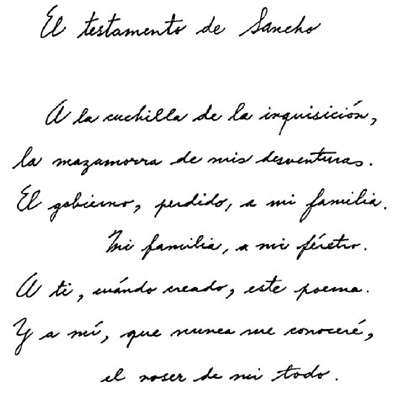 El testamento de Sancho
A la cuchilla de la inquisición,
la mazamorra de mis desventuras.
El gobierno, perdido, a mi familia.
Mi familia, a mi féretro.
A ti, cuándo creado, este poema.
Y a mí, que nunca me conoceré,
el noser de mi todo.